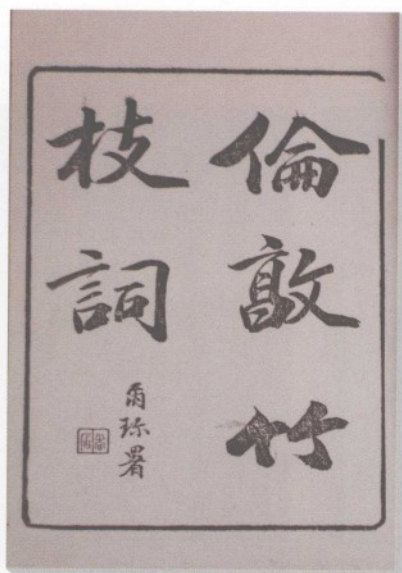 倫敦竹
枝詞
爾珎署